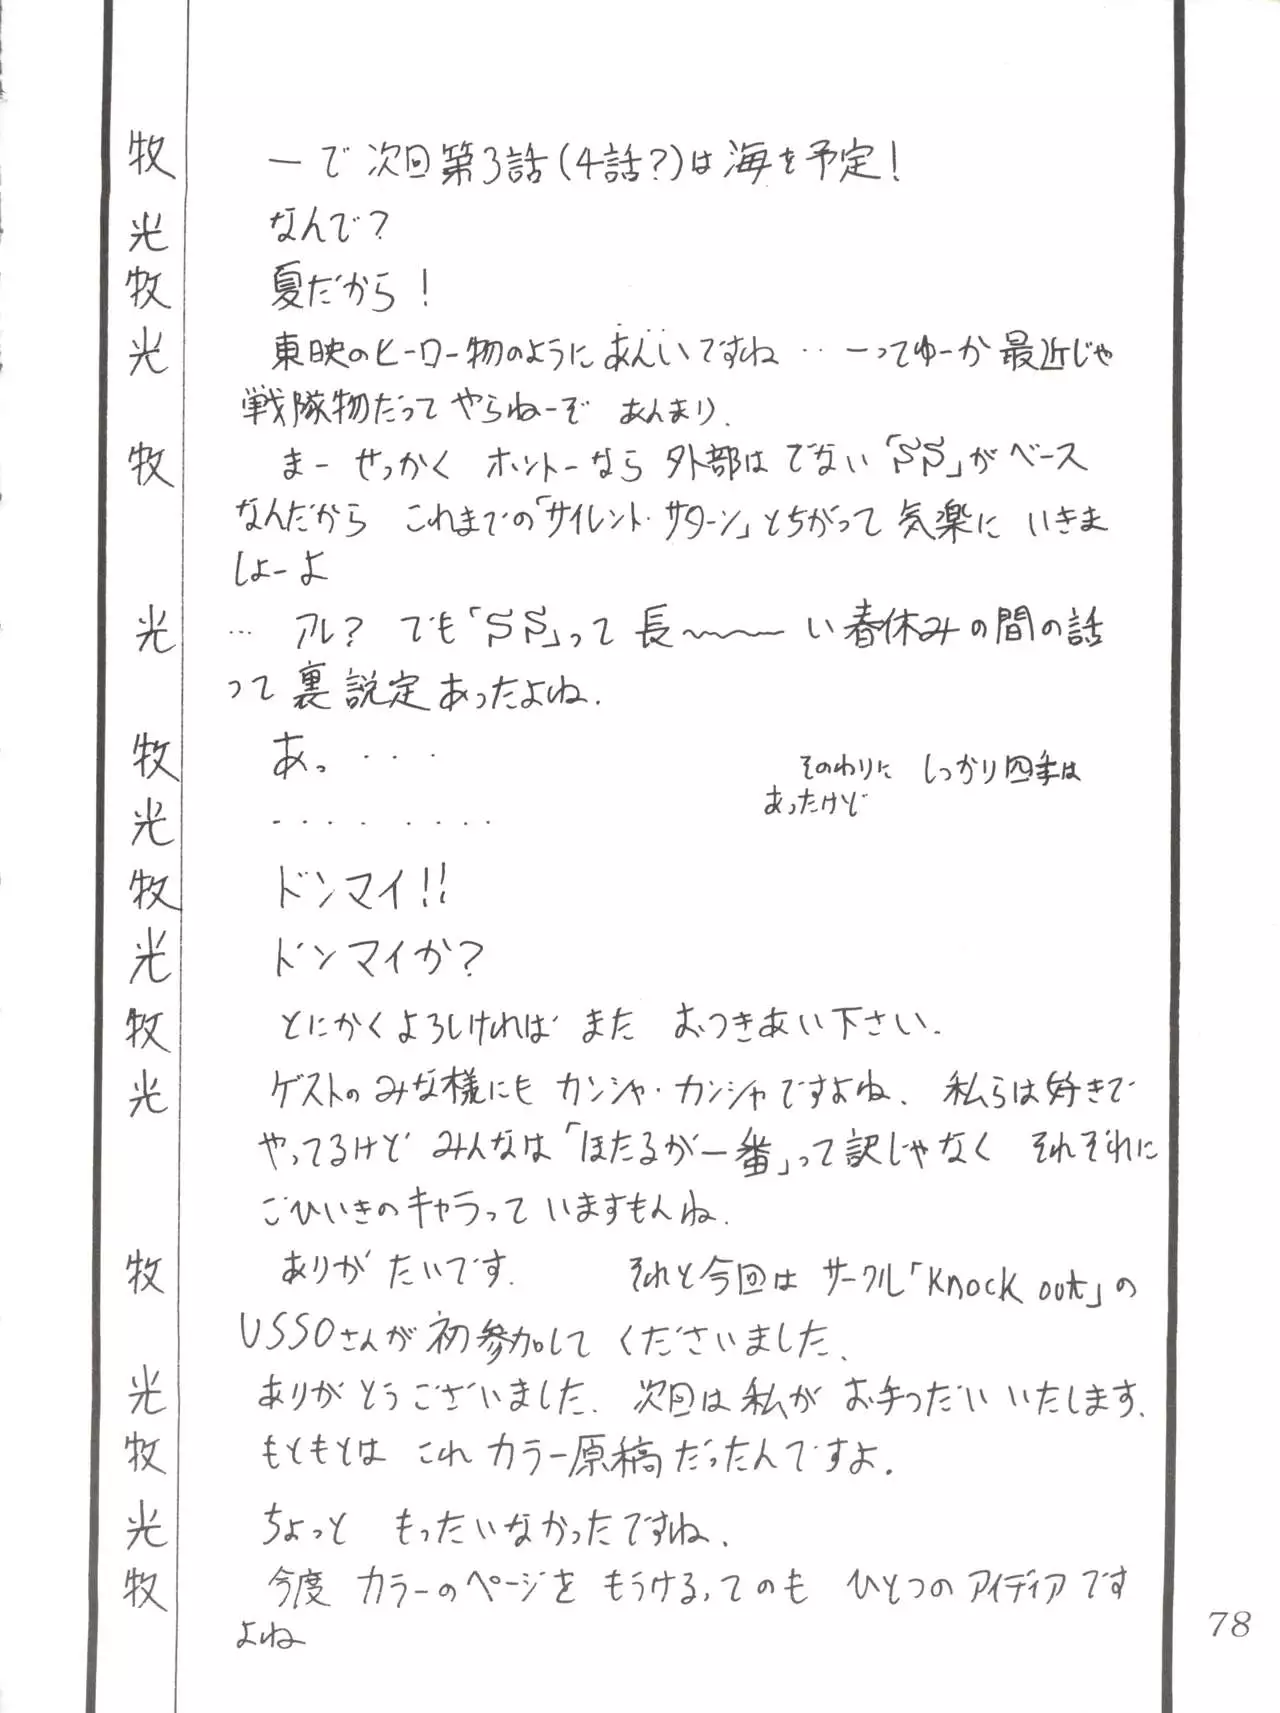 牧 ーで 次回第3話(4話?)は海を予定!
光 なんで?
牧 夏だから!
光 東映のヒーロー物のようにあんいですね‥ーってゆーか 最近じゃ
戦隊物だって やらねーぞ あんまり.
牧 まー せっかく ホントーなら 外部はでない「SS」がベース
なんだから これまでの「サイレント・サターン」とちがって 気楽に いきま
しょーよ
光 … アレ? でも「SS」って 長〜〜〜い春休みの間の話
って裏設定あったよね.
牧 あっ・・・
そのわりに しっかり四季は
あったけど
光 ・・・・・・・・
牧 ドンマイ!!
光 ドンマイか?
牧 とにかくよろしければ また おつきあい下さい.
光 ゲストのみな様にも カンシャ・カンシャですよね. 私らは好きで
やってるけど みんなは「ほたるが一番」って訳じゃなく それぞれに
ごひいきのキャラって いますもんね.
牧 ありがたいです. それと今回は サークル「Knock out」の
USSOさんが 初参加して くださいました.
光 ありがとうございました. 次回は私が お手つだい いたします.
牧 もともとは これ カラー原稿だったんですよ.
光 ちょっと もったいなかったですね.
牧 今度 カラーのページを もうける,てのも ひとつのアイディアです
よね
78